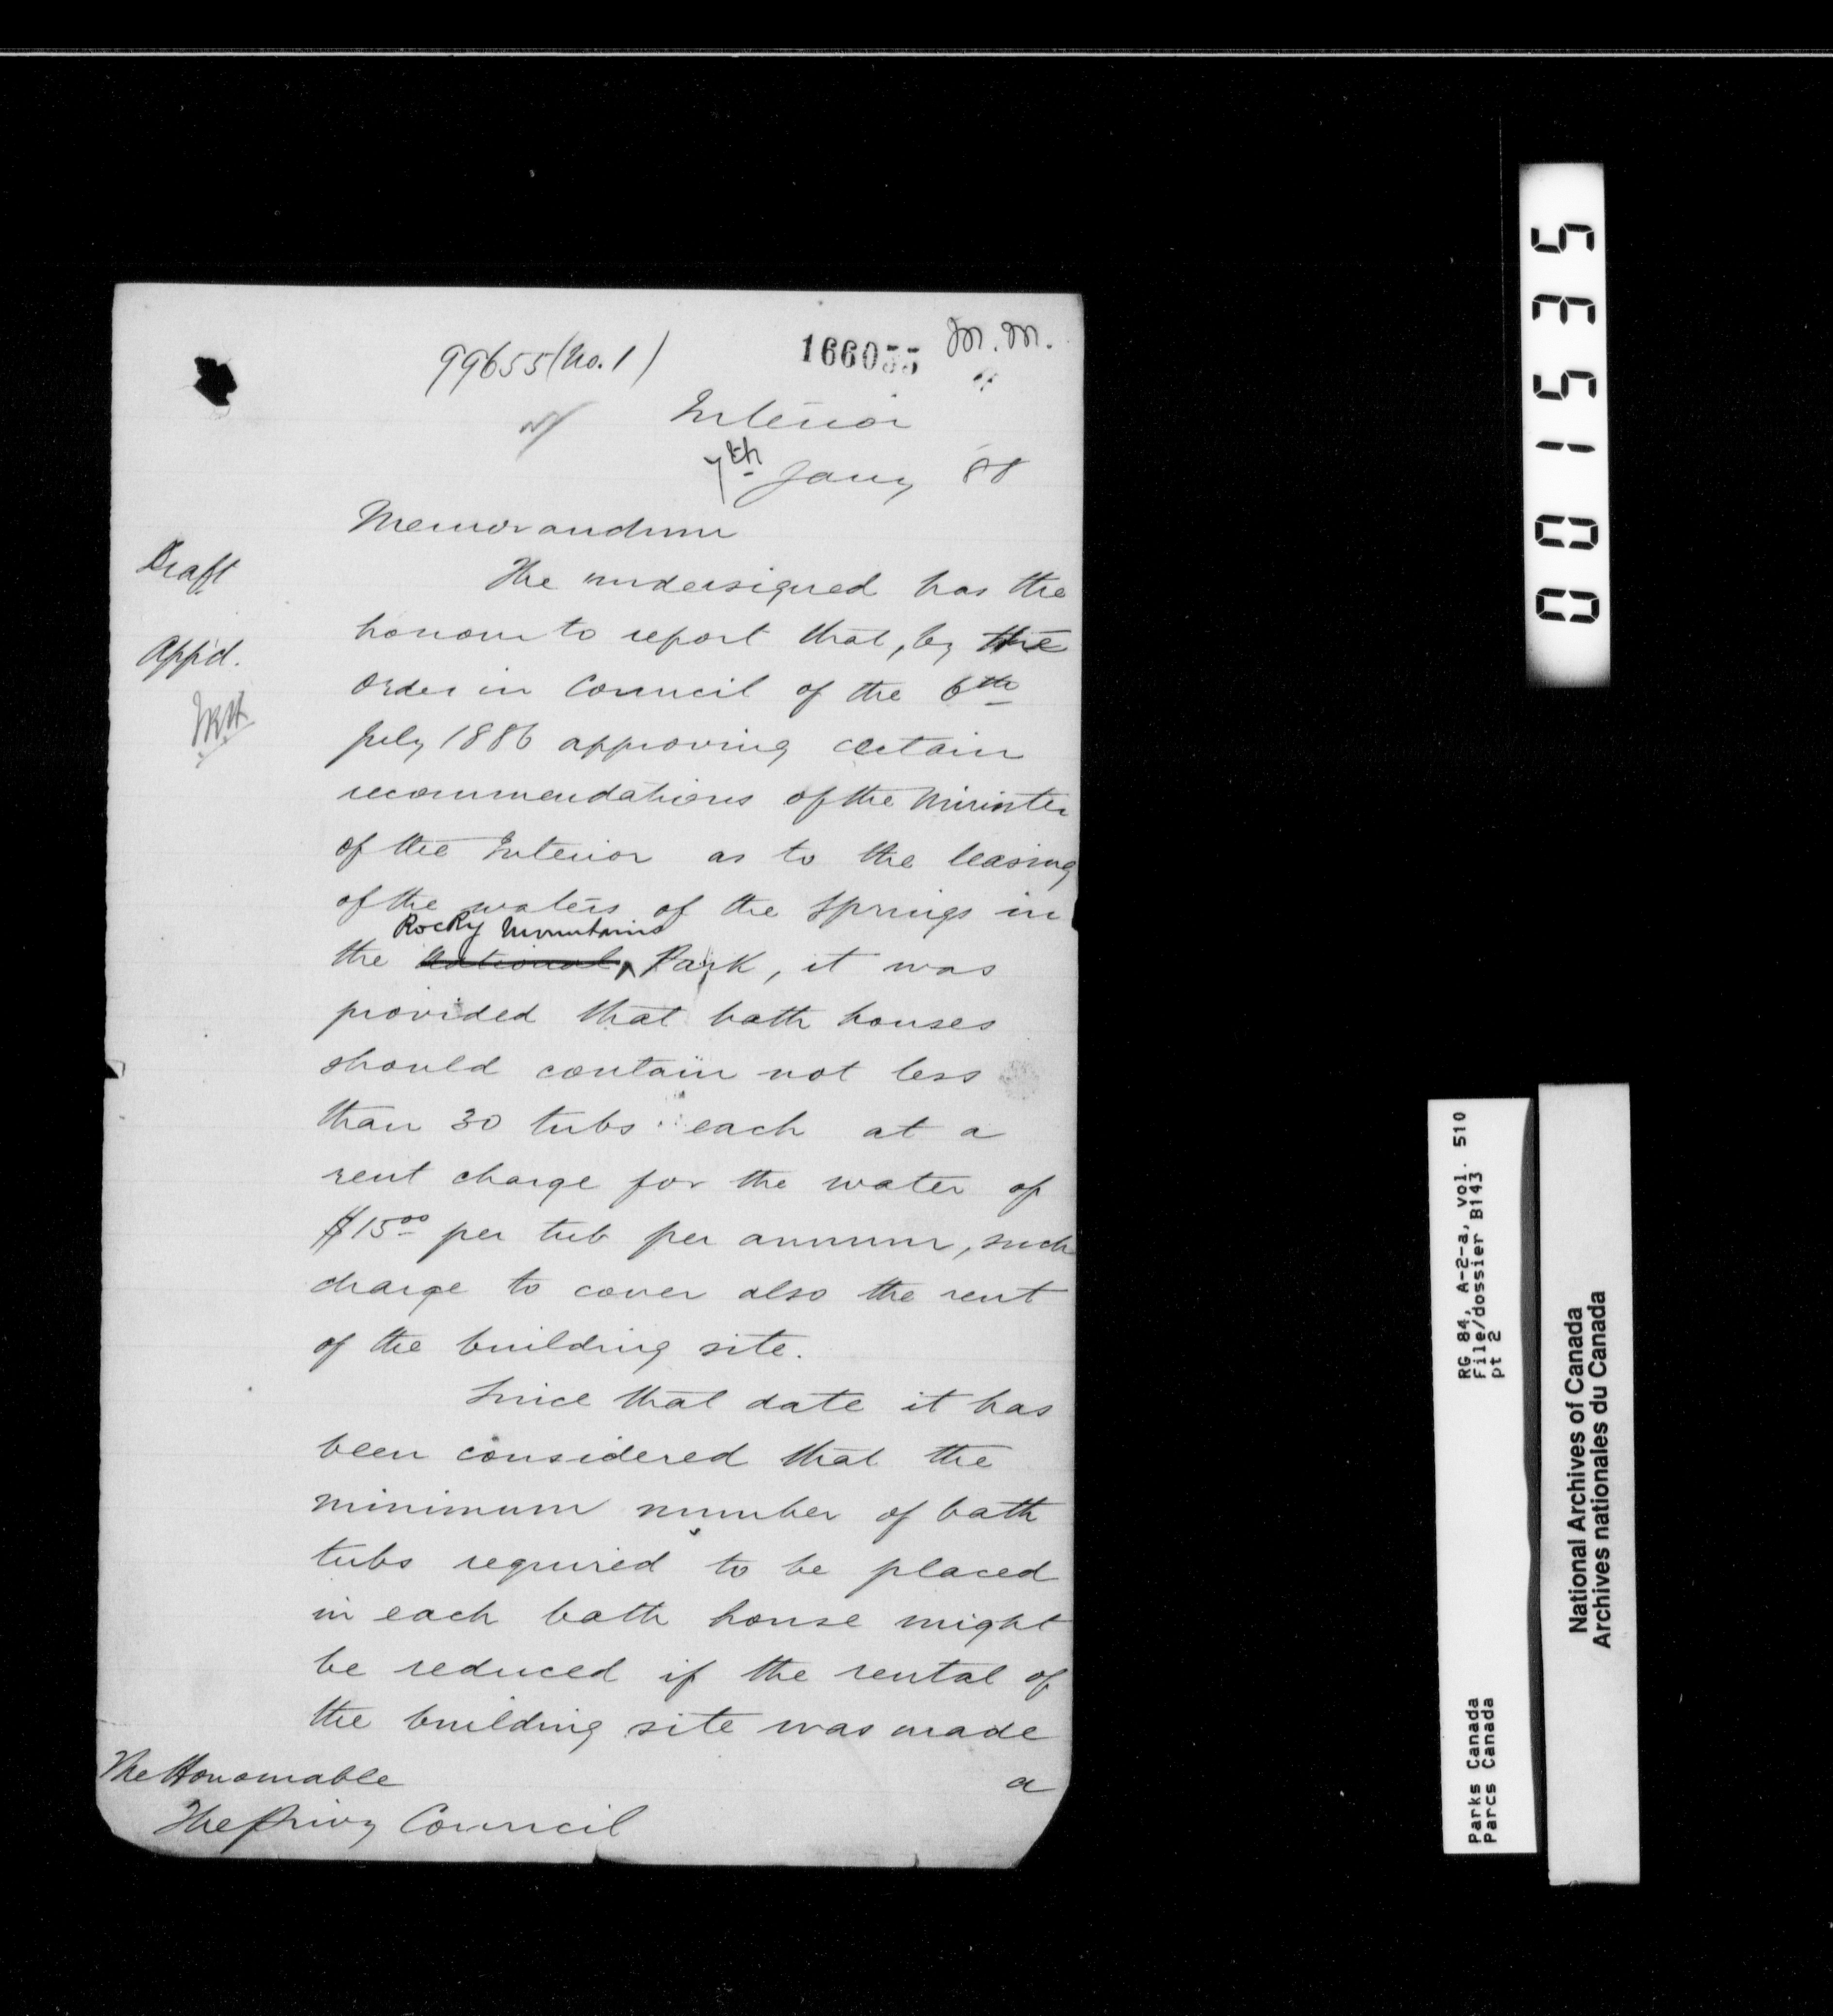 99655 (No. 1)
166055 M. M.
Interior
7th Jany 88
Memorandum
Draft
The undersigned has the
honour to report that, by the
App'd.
Order in Council of the 6th
July 1886 approving certain
recommendations of the Minister
of the Interior as to the leasing
of the waters of the Springs in
Rocky Mountains
the National Park, it was
provided that bath houses
should contain not less
than 30 tubs each at a
rent charge for the water of
$15.00 per tub per annum, such
charge to cover also the rent
of the building site.
Since that date it has
been considered that the
minimum number of bath
tubs required to be placed
in each bath house might
be reduced if the rental of
the building site was made
a
The Honourable
The Privy Council
001535
RG 84, A-2-a, vol. 510
File/dossier B143
pt 2
Parks Canada
Parcs Canada
National Archives of Canada
Archives nationales du Canada